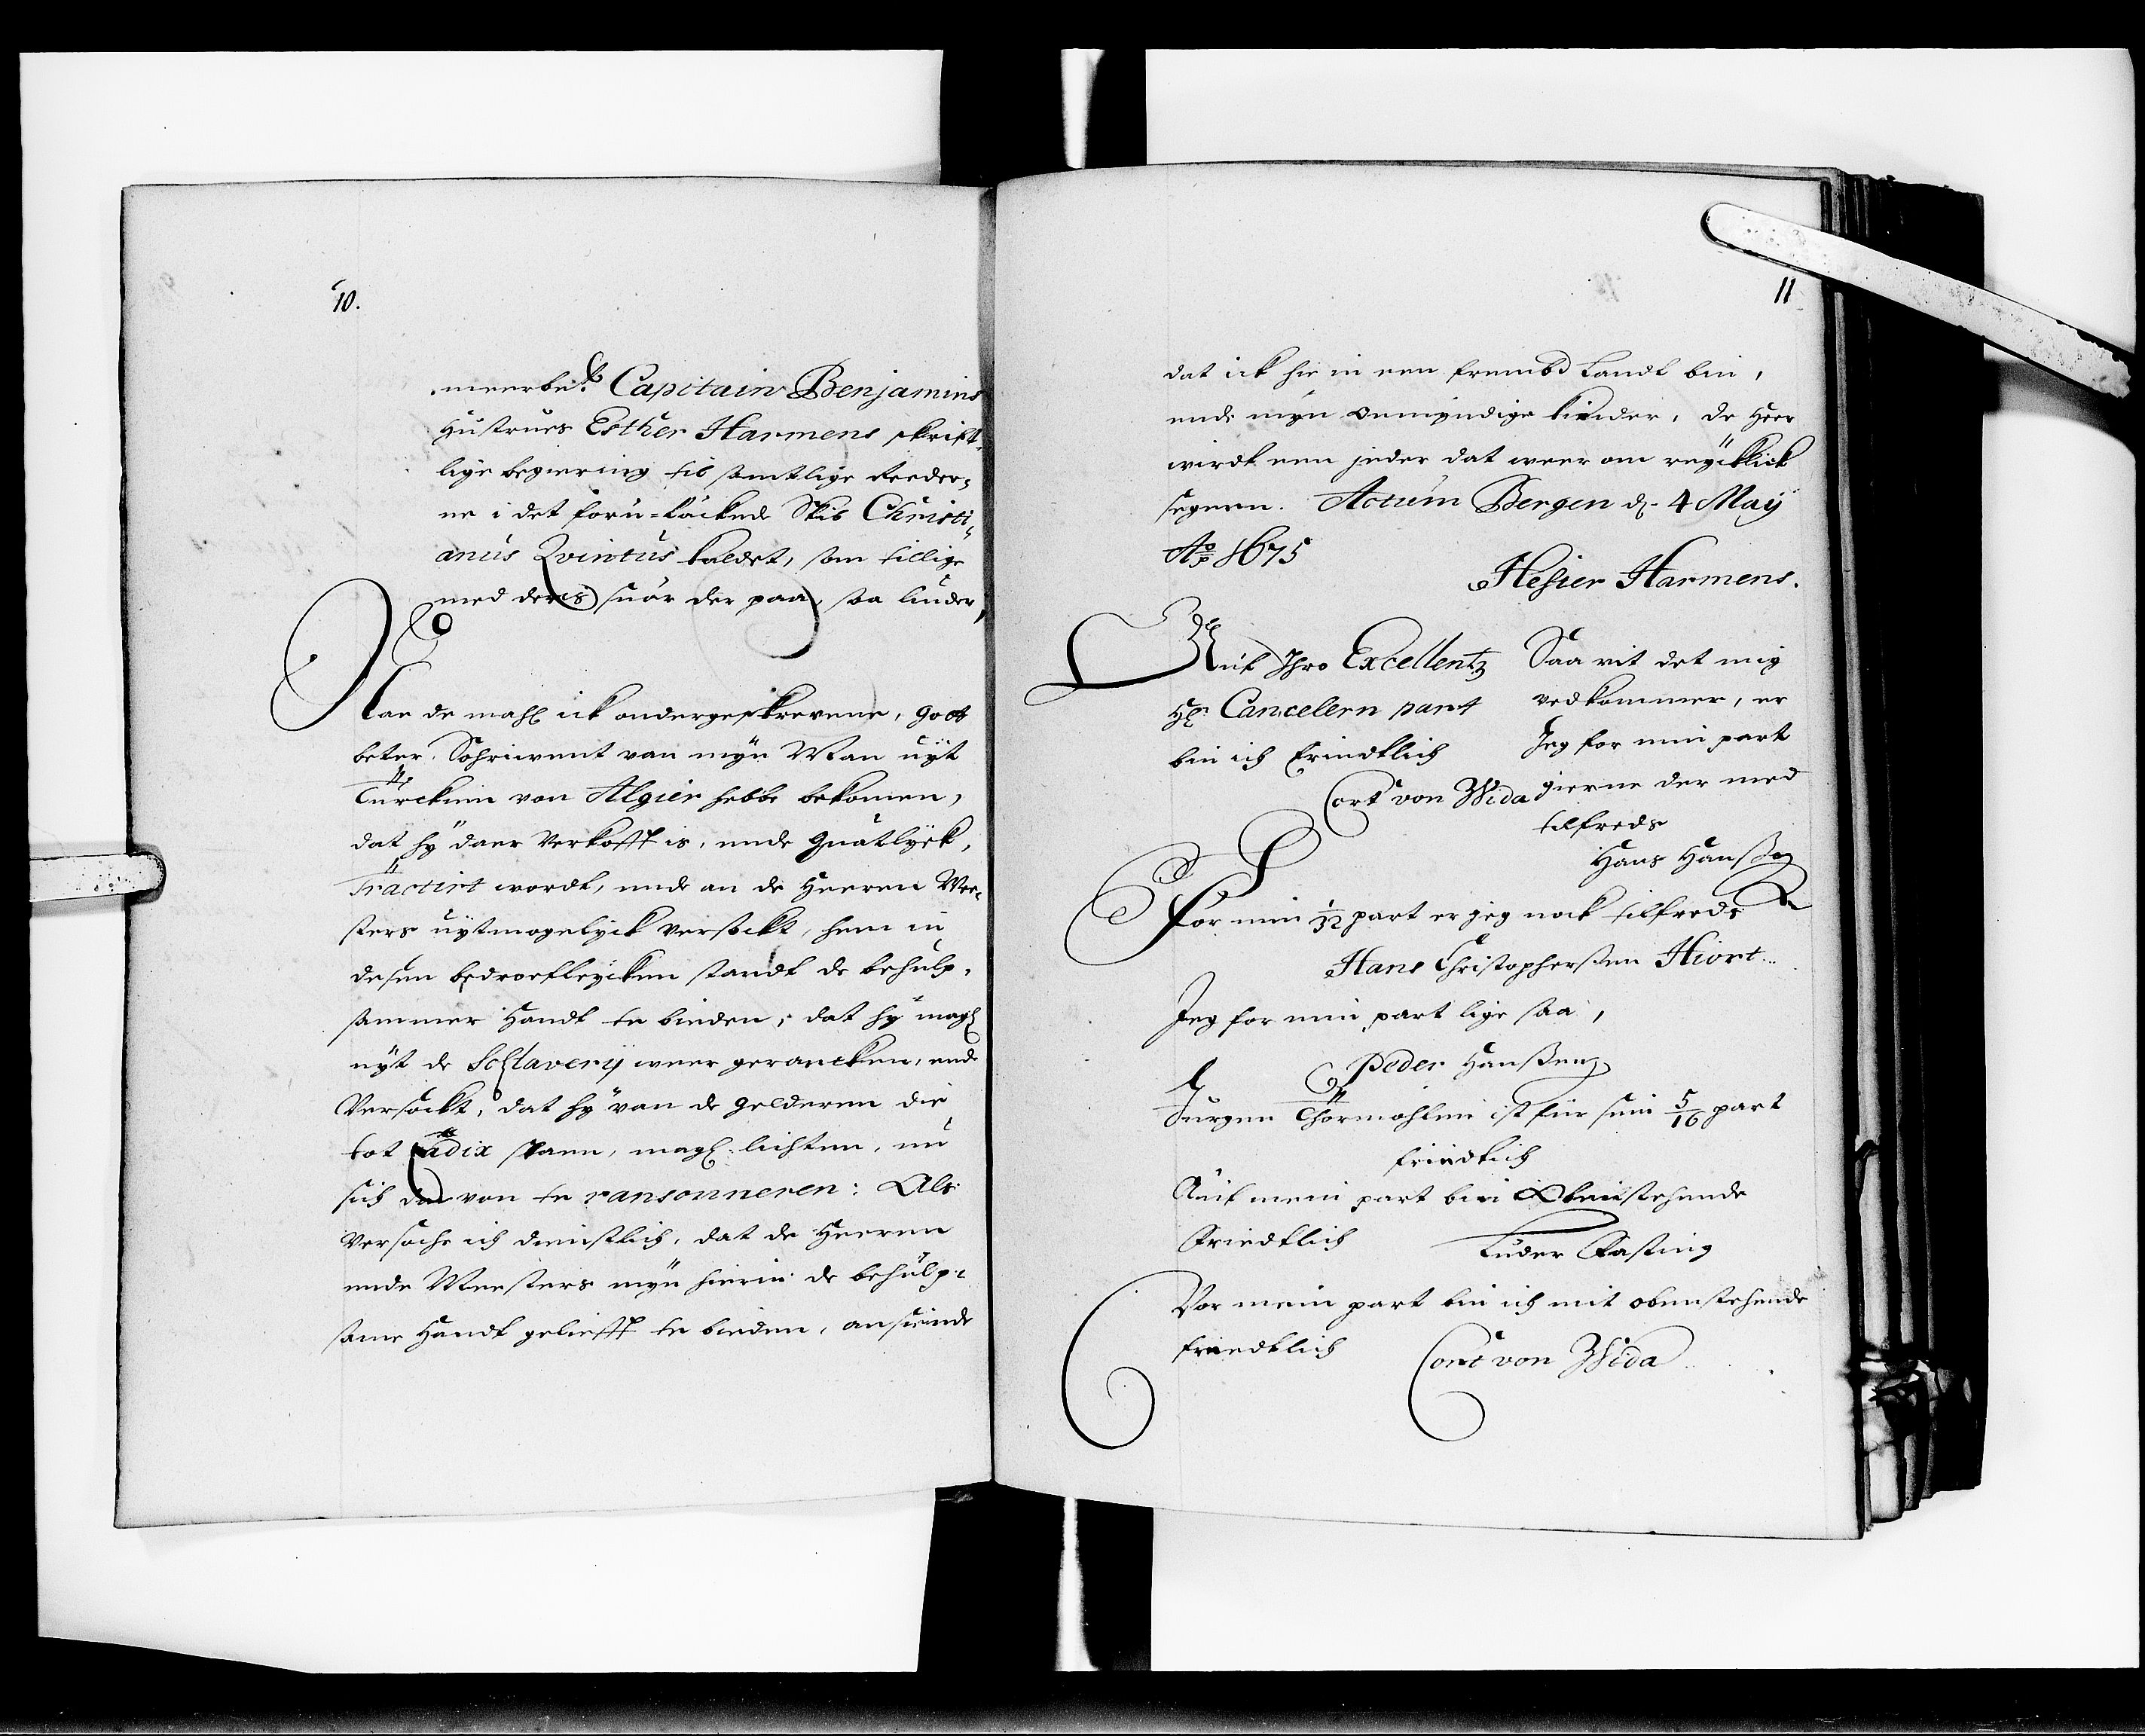 10.
meerbe:te Capitain Benjamins
Hustrues Esther Harmens skrift¬
lige begiering til samtlige Reder¬
ne i det foru-lückede Skib Christi¬
anus Qvintus kaldet, som tillige
med deris suar der paa, saa linder,
Nae de mahl ick ondergeskrevene, Gott
beter. Schrivent van myn Man uyt
Turckien von Algier hebbe bekomen,
dat hy daer Verkofft is, ende Quatlyck,
Tractirt wordt, ende an de Heeren Mee¬
sters uytmogelyck versockt, hem in
desen bedroefleycken standt de behulp¬
sammer Handt te bieden, dat hy magh
uyt de Schlaverij weer geraecken, ende
Versockt, dat hy van de gelderen die
tot Cadix staen, magh lichten, um
sich daer von te ransonneren: Als
Versoche ich dienstlich, dat de Heeren
ende Meesters myn hierin de behülp¬
same Handt geliefft te bieden, ansiende
11
dat ick hie in een frembd Landt bin,
ende myn onmyndige kinder, de Heer
wirdt een jeder dat weer om reycklick
segnen. Actum Bergen d. 4 May
Ao 1675
Hesier Harmens.
Auf Ihro Excellentz
Hr. Cancelern part
bin ich friedtlich
Cort von Wida
Saa vit det mig
vedkommer, er
Jeg for min part
gierne der med
tilfreds
Hans Hanßen
For min 1/32 part er jeg nock tilfreds
Hans Christopherßen Hiort
Jeg for min part lige saa,
Peder Hanßen
Jurgen Thormohlen ist für sein 5/16 part
friedlich
Auf mein part bin Obenstehende
Friedtlich
Luder Fasting
Vor mein part bin ich mit obenstehende
friedtlich
Cort von Wida